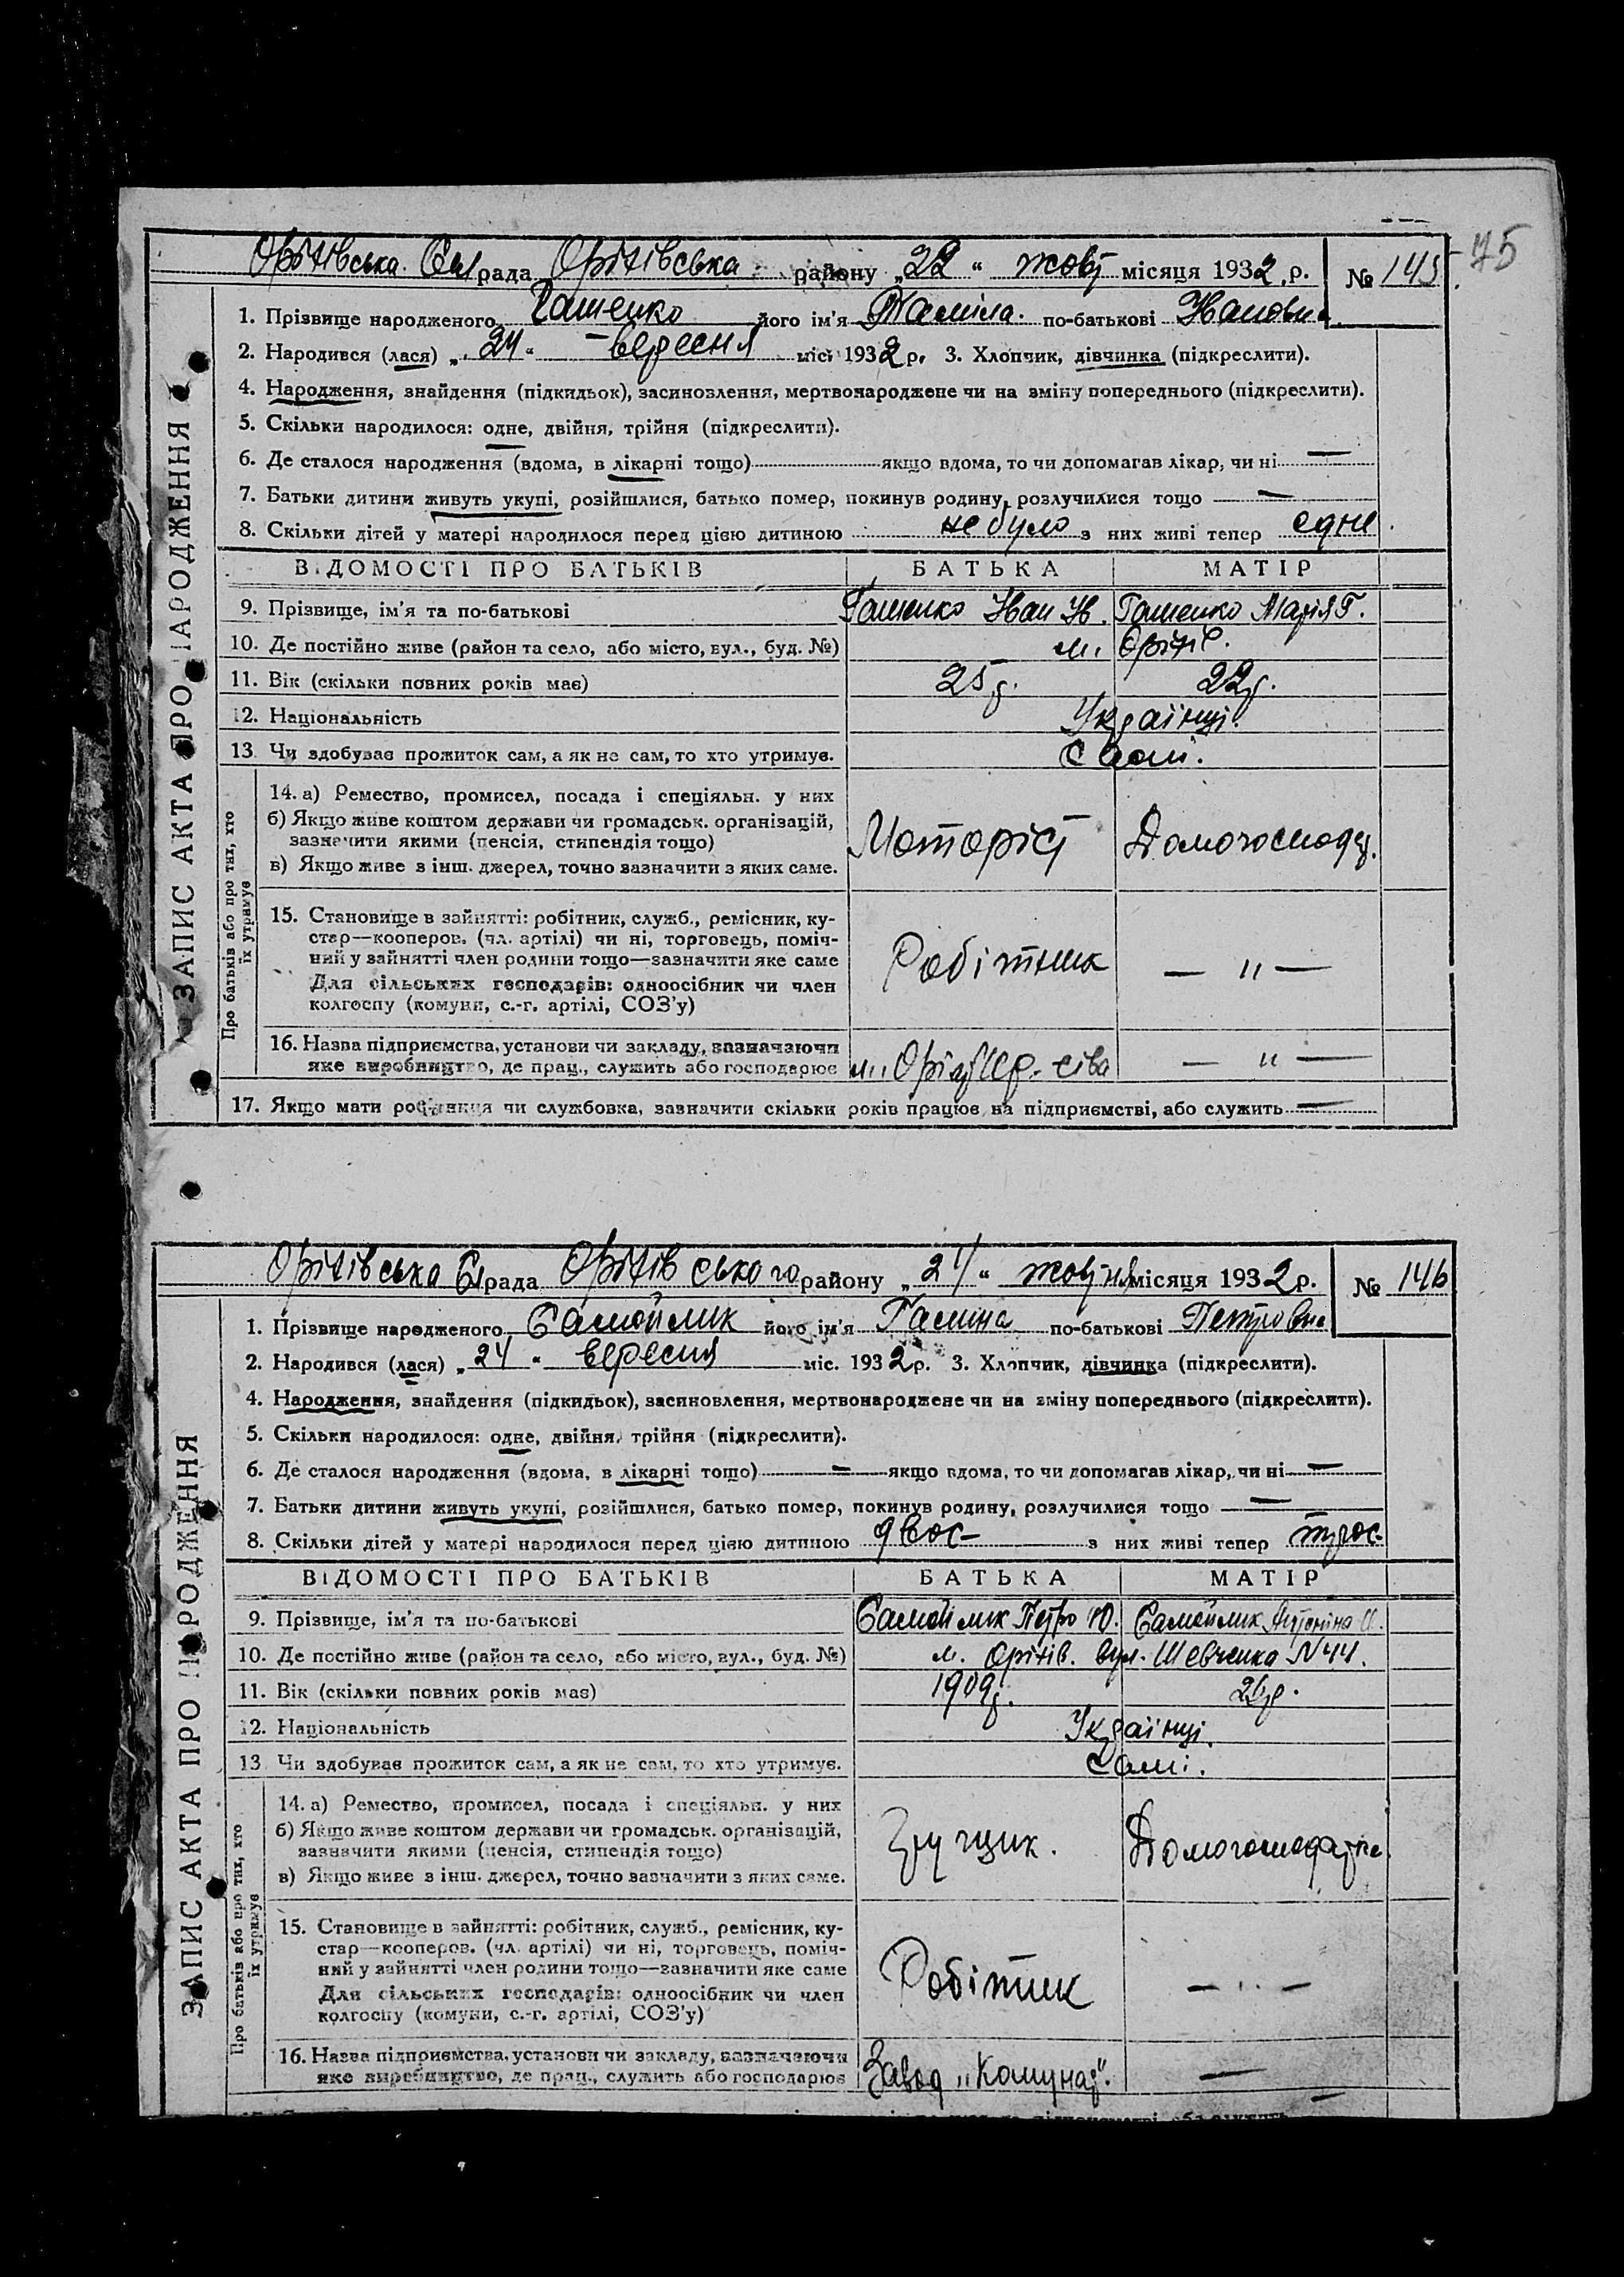 75
Оріхівська Сел рада Оріхівська району „22“ жовт місяця 1932 р. № 145
1. Прізвище народженого Гашенко його ім'я Таміла. по-батькові Ивановна
2. Народився (лася) „24“ вересня міс. 1932 р. 3. Хлопчик, дівчинка (підкреслити).
4. Народження, знайдення (підкидьок), засиновлення, мертвонароджене чи на зміну попереднього (підкреслити).
5. Скільки народилося: одне, двійня, трійня (підкреслити).
6. Де сталося народження (вдома, в лікарні тощо) якщо вдома, то чи допомагав лікар, чи ні —
7. Батьки дитини живуть укупі, розійшлися, батько помер, покинув родину, розлучилися тощо —
8. Скільки дітей у матері народилося перед цією дитиною не було з них живі тепер едне
ВІДОМОСТІ ПРО БАТЬКІВ БАТЬКА МАТІР
9. Прізвище, ім'я та по-батькові Гашенко Иван Ив. Гашенко Марія Г.
10. Де постійно живе (район та село, або місто, вул., буд. №) м. Оріхів.
11. Вік (скільки повних років має) 25 р. 22 р.
12. Національність Українці.
13. Чи здобуває прожиток сам, а як не сам, то хто утримує. Самі.
ЗАПИС АКТА ПРО НАРОДЖЕННЯ
Про батьків або про тих, хто їх утримує
14. а) Ремество, промисел, посада і спеціяльн. у них
б) Якщо живе коштом держави чи громадськ. організацій,
зазначити якими (пенсія, стипендія тощо)
в) Якщо живе з інш. джерел, точно зазначити з яких саме.
Моторіст Домогосподар.
15. Становище в зайнятті: робітник, служб., ремісник, ку-
стар—кооперов. (чл. артілі) чи ні, торговець, поміч-
ний у зайнятті член родини тощо—зазначити яке саме
Для сільських господарів: одноосібник чи член
колгоспу (комуни, с.-г. артілі, СОЗ'у)
Робітник — " —
16. Назва підприємства, установи чи закладу, зазначаючи
яке виробництво, де прац., служить або господарює
— " —
17. Якщо мати робітниця чи службовка, зазначити скільки років працює на підприємстві, або служить —
Оріхівська Сел рада Оріхівського району „24“ жовтня місяця 1932 р. № 146
1. Прізвище народженого Самойлик його ім'я Галина по-батькові Петровна
2. Народився (лася) „24“ вересня міс. 1932 р. 3. Хлопчик, дівчинка (підкреслити).
4. Народження, знайдення (підкидьок), засиновлення, мертвонароджене чи на зміну попереднього (підкреслити).
5. Скільки народилося: одне, двійня, трійня (підкреслити).
6. Де сталося народження (вдома, в лікарні тощо) — якщо вдома, то чи допомагав лікар, чи ні —
7. Батьки дитини живуть укупі, розійшлися, батько помер, покинув родину, розлучилися тощо —
8. Скільки дітей у матері народилося перед цією дитиною двоє з них живі тепер троє
ВІДОМОСТІ ПРО БАТЬКІВ БАТЬКА МАТІР
9. Прізвище, ім'я та по-батькові Самойлик Петро Ю. Самойлик Антоніна И.
10. Де постійно живе (район та село, або місто, вул., буд. №) м. Оріхів. вул. Шевченка N 44.
11. Вік (скільки повних років має) 1909 р. 26 р.
12. Національність Українці.
13. Чи здобуває прожиток сам, а як не сам, то хто утримує. Самі.
ЗАПИС АКТА ПРО НАРОДЖЕННЯ
Про батьків або про тих, хто їх утримує
14. а) Ремество, промисел, посада і спеціяльн. у них
б) Якщо живе коштом держави чи громадськ. організацій,
зазначити якими (пенсія, стипендія тощо)
в) Якщо живе з інш. джерел, точно зазначити з яких саме.
Домогосподарка
15. Становище в зайнятті: робітник, служб., ремісник, ку-
стар—кооперов. (чл. артілі) чи ні, торговець, поміч-
ний у зайнятті член родини тощо—зазначити яке саме
Для сільських господарів: одноосібник чи член
колгоспу (комуни, с.-г. артілі, СОЗ'у)
Робітник — " —
16. Назва підприємства, установи чи закладу, зазначаючи
яке виробництво, де прац., служить або господарює
Завод „Комунар". —